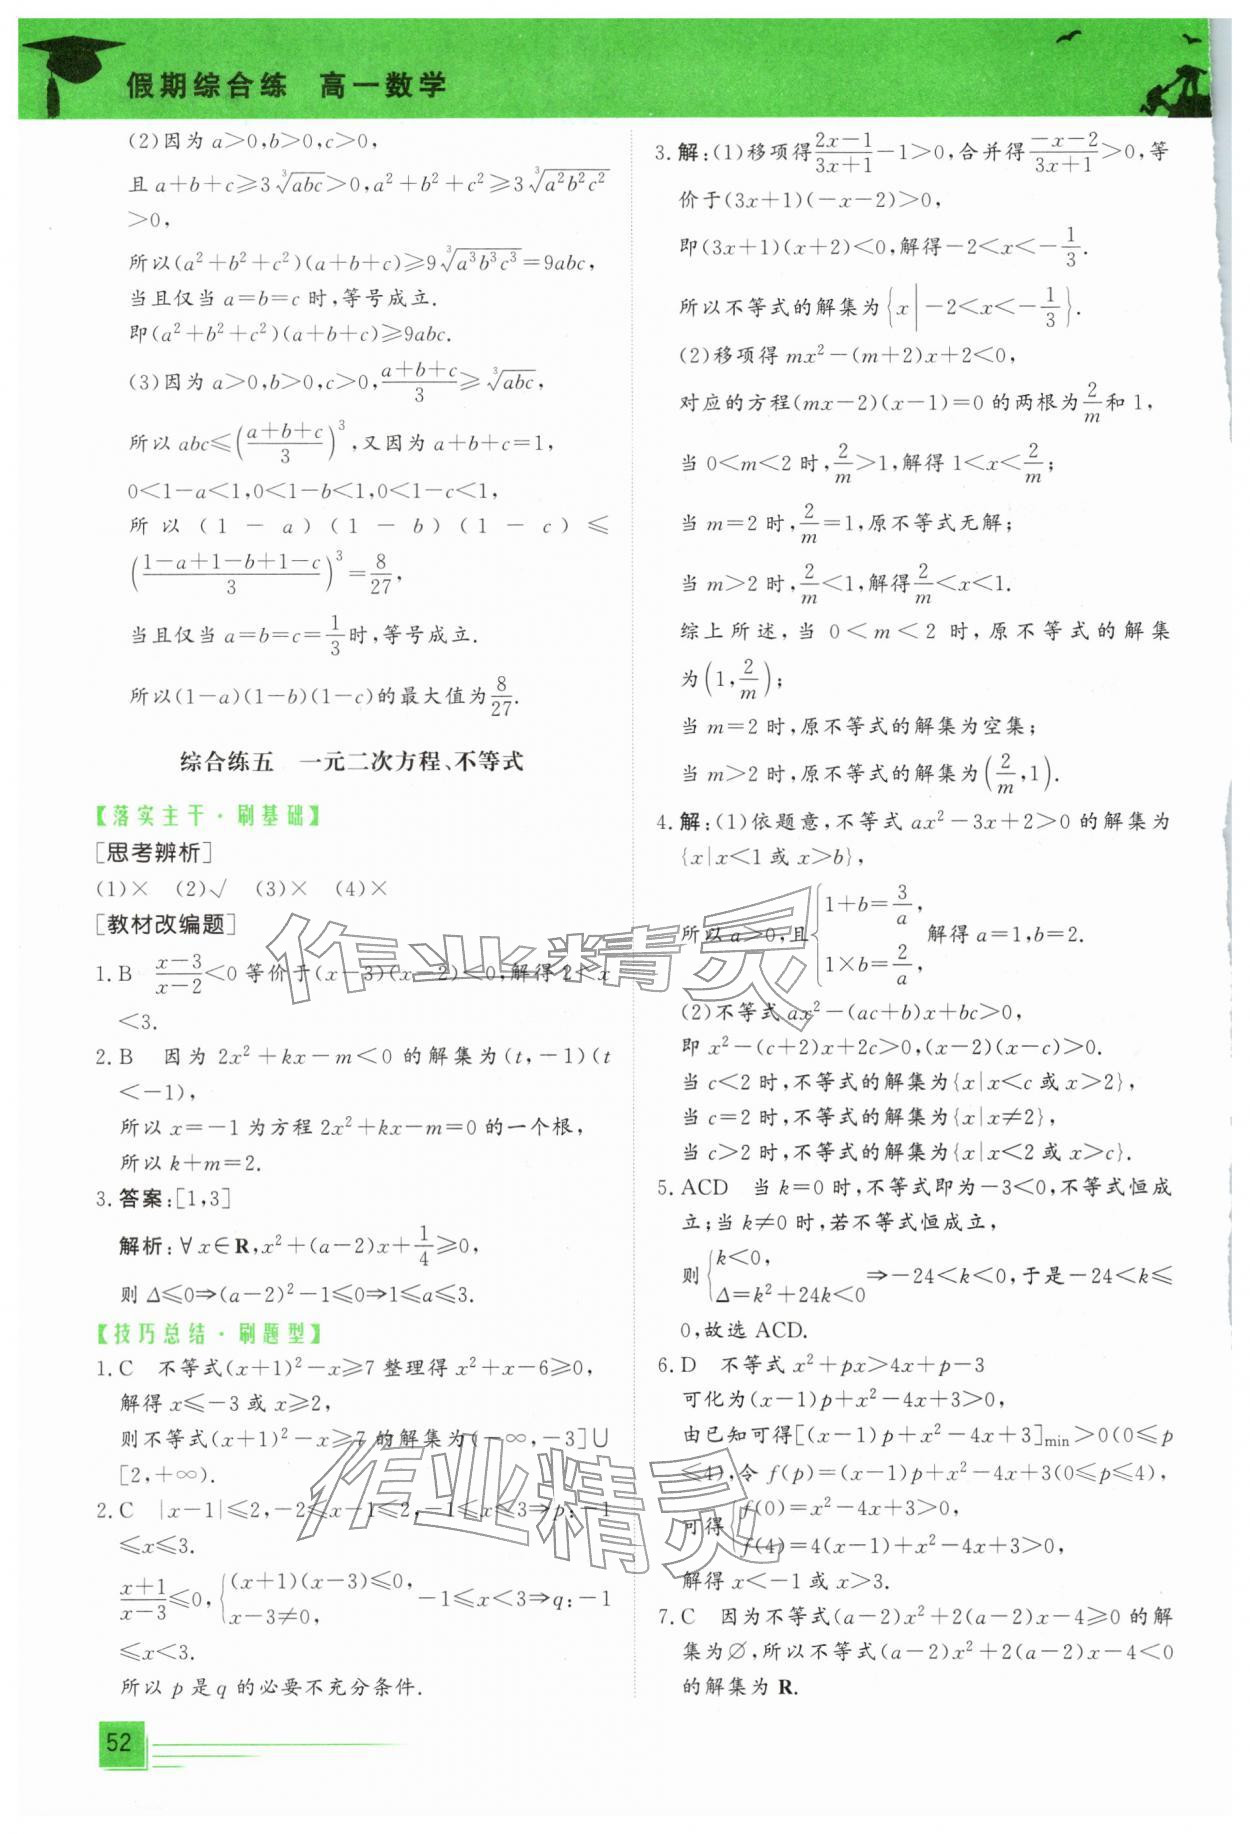 假期综合练 高一数学
(2)因为 a>0,b>0,c>0,
且 a+b+c≥3∛(abc)>0,a²+b²+c²≥3∛(a²b²c²)
>0,
所以(a²+b²+c²)(a+b+c)≥9∛(a³b³c³)=9abc,
当且仅当 a=b=c 时,等号成立.
即(a²+b²+c²)(a+b+c)≥9abc.
(3)因为 a>0,b>0,c>0,(a+b+c)/3≥∛(abc),
所以 abc≤((a+b+c)/3)³,又因为 a+b+c=1,
0<1-a<1,0<1-b<1,0<1-c<1,
所以(1-a)(1-b)(1-c)≤
((1-a+1-b+1-c)/3)³=8/27,
当且仅当 a=b=c=1/3时,等号成立.
所以(1-a)(1-b)(1-c)的最大值为8/27.
综合练五 一元二次方程、不等式
【落实主干·刷基础】
[思考辨析]
(1)× (2)√ (3)× (4)×
[教材改编题]
1.B (x-3)/(x-2)<0 等价于(x-3)(x-2)<0,解得 2<x
<3.
2.B 因为 2x²+kx-m<0 的解集为(t,-1)(t
<-1),
所以 x=-1 为方程 2x²+kx-m=0 的一个根,
所以 k+m=2.
3.答案:[1,3]
解析:∀x∈R,x²+(a-2)x+1/4≥0,
则 Δ≤0⇒(a-2)²-1≤0⇒1≤a≤3.
【技巧总结·刷题型】
1.C 不等式(x+1)²-x≥7 整理得 x²+x-6≥0,
解得 x≤-3 或 x≥2,
则不等式(x+1)²-x≥7 的解集为(-∞,-3]∪
[2,+∞).
2.C |x-1|≤2,-2≤x-1≤2,-1≤x≤3⇒p:-1
≤x≤3.
(x+1)/(x-3)≤0,{(x+1)(x-3)≤0, x-3≠0, -1≤x<3⇒q:-1
≤x<3.
所以 p 是 q 的必要不充分条件.
3.解:(1)移项得(2x-1)/(3x+1)-1>0,合并得(-x-2)/(3x+1)>0,等
价于(3x+1)(-x-2)>0,
即(3x+1)(x+2)<0,解得-2<x<-1/3.
所以不等式的解集为{x|-2<x<-1/3}.
(2)移项得 mx²-(m+2)x+2<0,
对应的方程(mx-2)(x-1)=0 的两根为2/m和 1,
当 0<m<2 时,2/m>1,解得 1<x<2/m;
当 m=2 时,2/m=1,原不等式无解;
当 m>2 时,2/m<1,解得2/m<x<1.
综上所述,当 0<m<2 时,原不等式的解集
为(1,2/m);
当 m=2 时,原不等式的解集为空集;
当 m>2 时,原不等式的解集为(2/m,1).
4.解:(1)依题意,不等式 ax²-3x+2>0 的解集为
{x|x<1 或 x>b},
所以 a>0,且{1+b=3/a, 1×b=2/a, 解得 a=1,b=2.
(2)不等式 ax²-(ac+b)x+bc>0,
即 x²-(c+2)x+2c>0,(x-2)(x-c)>0.
当 c<2 时,不等式的解集为{x|x<c 或 x>2},
当 c=2 时,不等式的解集为{x|x≠2},
当 c>2 时,不等式的解集为{x|x<2 或 x>c}.
5.ACD 当 k=0 时,不等式即为-3<0,不等式恒成
立;当 k≠0 时,若不等式恒成立,
则{k<0, Δ=k²+24k<0⇒-24<k<0,于是-24<k≤
0,故选 ACD.
6.D 不等式 x²+px>4x+p-3
可化为(x-1)p+x²-4x+3>0,
由已知可得[(x-1)p+x²-4x+3]min>0(0≤p
≤4),令 f(p)=(x-1)p+x²-4x+3(0≤p≤4),
可得{f(0)=x²-4x+3>0, f(4)=4(x-1)+x²-4x+3>0,
解得 x<-1 或 x>3.
7.C 因为不等式(a-2)x²+2(a-2)x-4≥0 的解
集为∅,所以不等式(a-2)x²+2(a-2)x-4<0
的解集为 R.
52
作业精灵
作业精灵